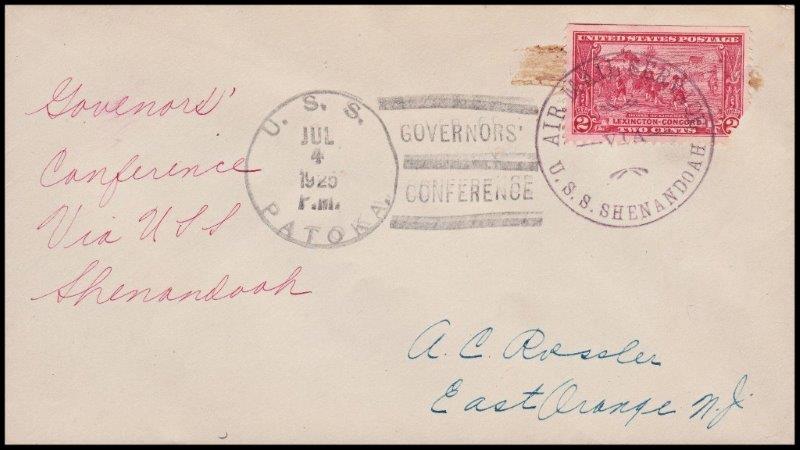 Govenors'
Conference
Via USS
Shenandoah
U. S. S.
JUL
4
1925
P.M.
PATOKA.
GOVERNORS'
CONFERENCE
UNITED STATES POSTAGE
2 LEXINGTON-CONCORD 2
TWO CENTS
AIR MAIL SERVICE
VIA
U.S.S. SHENANDOAH
A. C. Roessler
East Orange N.J.